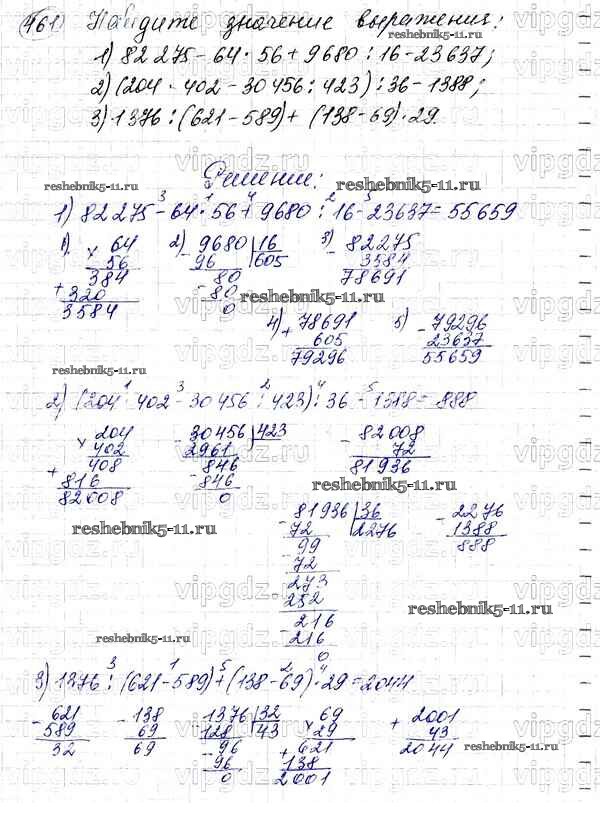 461) Найдите значение выражения:
1) 82 275 - 64 · 56 + 9680 : 16 - 23637;
2) (204 · 402 - 30456 : 423) : 36 - 1388;
3) 1376 : (621 - 589) + (138 - 69) · 29.
Решение:
1) 82 275 - 64 · 56 + 9680 : 16 - 23637 = 55659
3 1 4 2 5
1) × 64
56
384
+ 320
3584
2) - 9680 | 16
96 605
80
- 80
0
3) - 82275
3584
78691
4) + 78691
605
79296
5) - 79296
23637
55659
2) (204 · 402 - 30456 : 423) : 36 - 1388 = 888
1 3 2 4 5
× 204
402
408
+ 816
82008
- 30456 | 423
2961 72
846
- 846
0
- 82008
72
81936
- 81936 | 36
72 2276
99
- 72
273
- 252
216
- 216
0
- 2276
1388
888
3) 1376 : (621 - 589) + (138 - 69) · 29 = 2044
3 1 5 2 4
- 621
589
32
- 138
69
69
1376 | 32
128 43
- 96
96
0
× 69
29
+ 621
138
2001
+ 2001
43
2044
reshebnik5-11.ru
vipgdz.ru